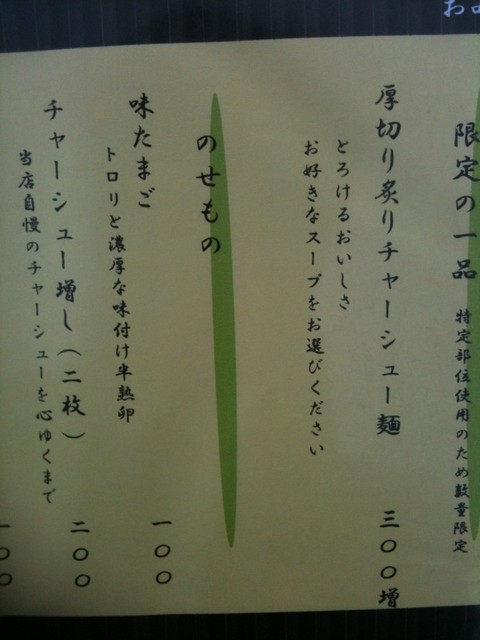 限定の一品
特定部位使用のため数量限定
厚切り炙りチャーシュー麺
三〇〇増
とろけるおいしさ
お好きなスープをお選びください
のせもの
味たまご
一〇〇
トロリと濃厚な味付け半熟卵
チャーシュー増し(二枚)
二〇〇
当店自慢のチャーシューを心ゆくまで
一〇〇